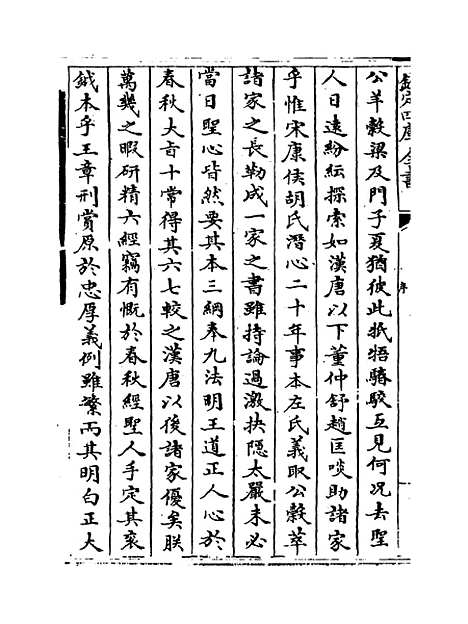 欽定四庫全書
序
公羊榖梁及門子夏猶彼此牴牾踳駁互見何況去聖
人日遠紛紜探索如漢唐以下董仲舒趙匡啖助諸家
乎惟宋康侯胡氏潛心二十年事本左氏義取公榖萃
諸家之長勒成一家之書雖持論過激抉隠太嚴未必
當日聖心皆然要其本三綱奉九法明王道正人心於
春秋大㫖十常得其六七較之漢唐以後諸家優矣朕
萬幾之暇研精六經竊有慨於春秋經聖人手定其衮
鉞本乎王章刑賞原於忠厚義例雖繁而其明白正大